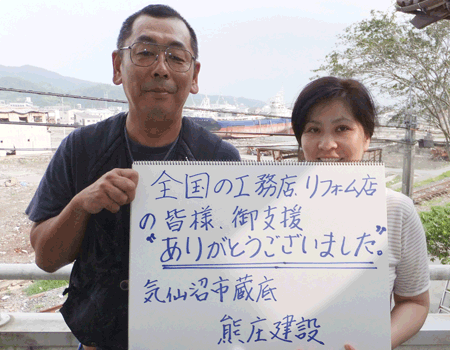 全国の工務店、リフォーム店
の皆様、御支援
"ありがとうございました"。
気仙沼市蔵底
熊庄建設